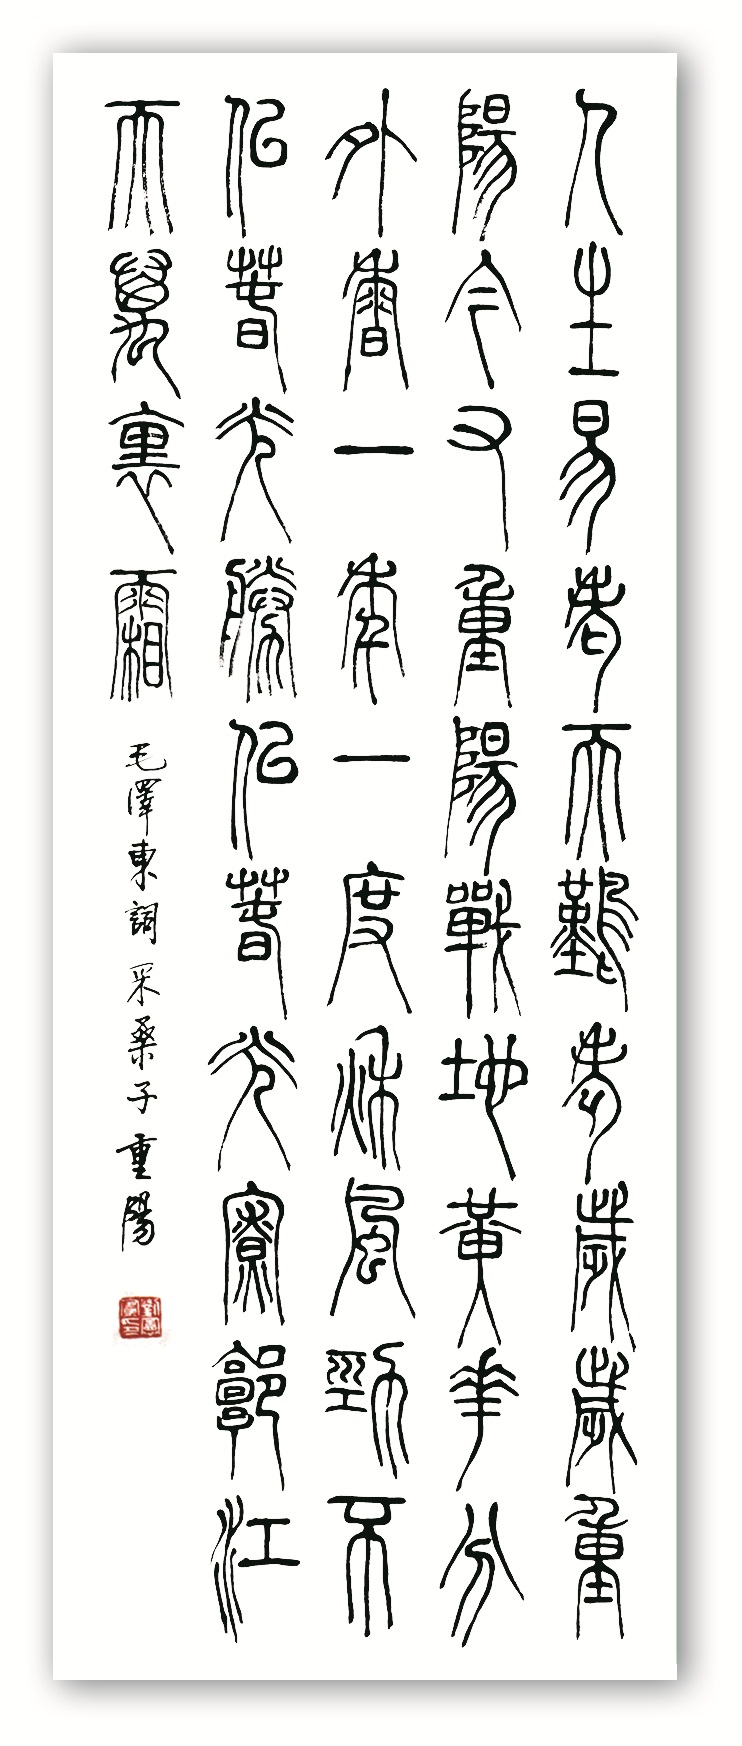 人生易老天難老歲歲重
陽今又重陽戰地黃華分
外香一年一度秋風勁不
似春光勝似春光寥郭江
天萬裏霜
毛澤東詞 采桑子 重陽